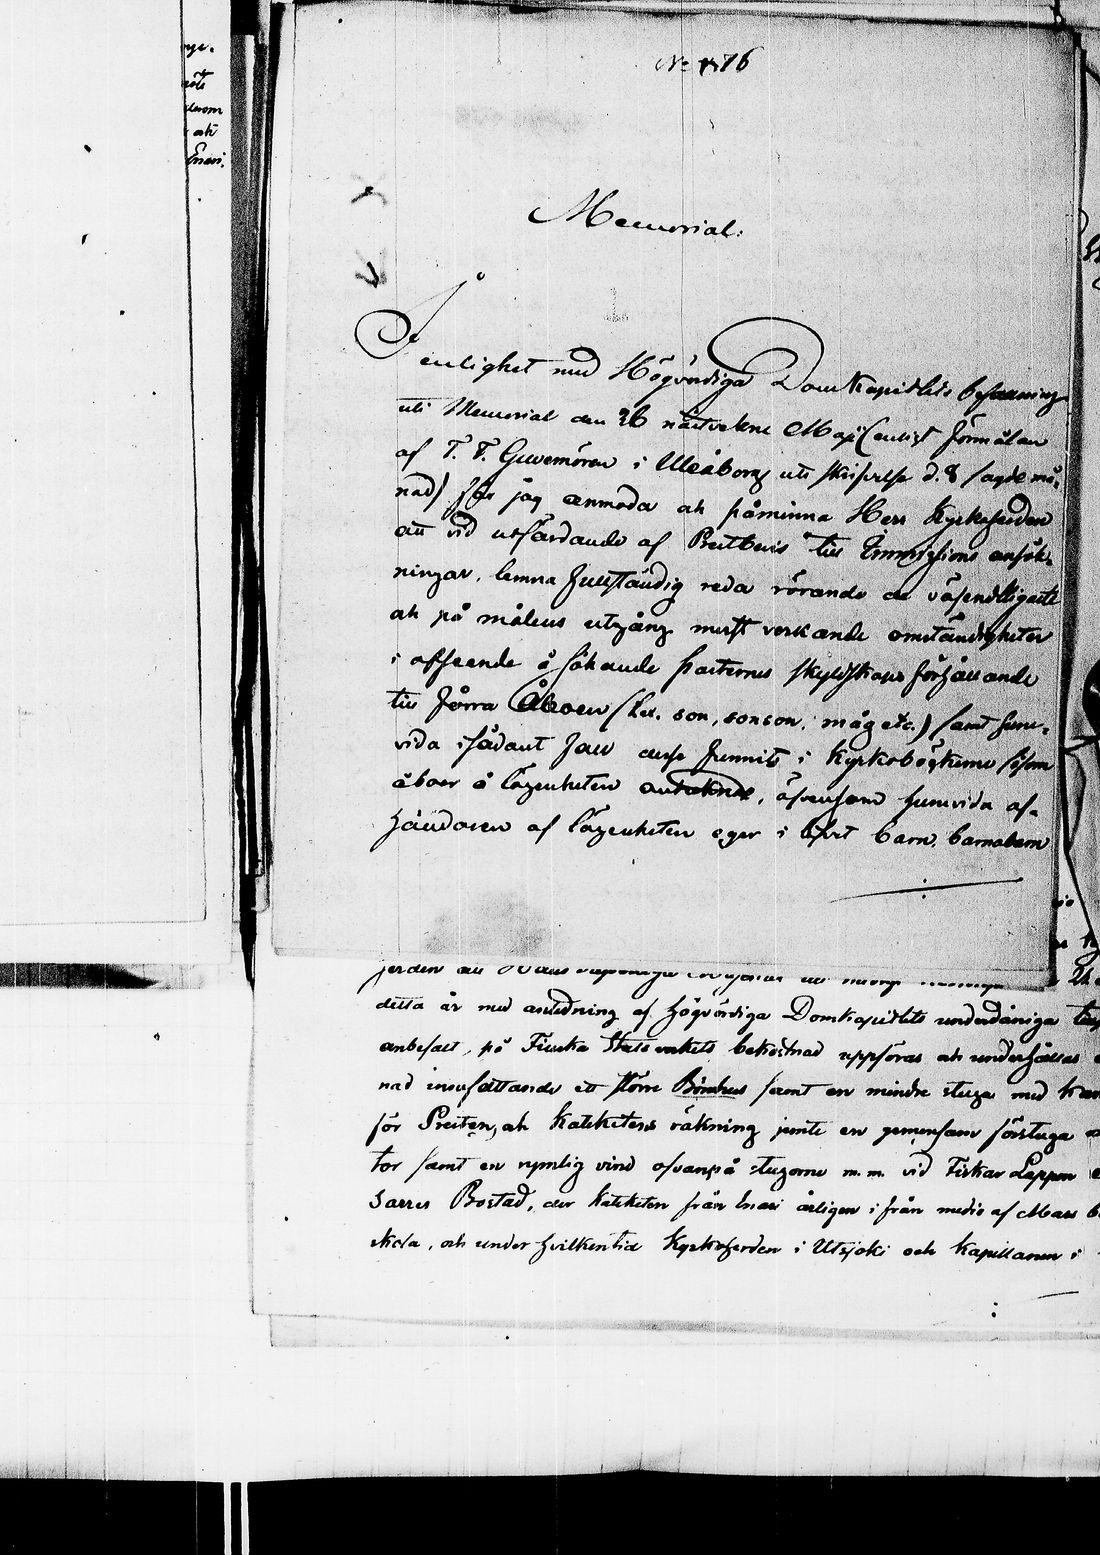 nåts
derom
att
Enari.
No 76
Memorial.
I enlighet med Högvördiga DomKapitlets befallning
uti Memorial den 26 nästvekne Maji (enligt förmälan
af T. F. Guvernören i Uleåborg uti skrifvelse d. 8 sagde må-
nad) får jag anmoda och påminna Herr Kyrkoherden
att vid utfärdande af Prestbevis till Immissions ansök-
ningar, lemna fullständig reda rörande de väsendtligaste
och på målens utgång mest verkande omständigheter
i afseende å sökande parternes skyldskaps förhållande
till förra Åboen (t.ex. son, sonson, måg etc.) samt huru-
vida i sådant fall desse funnits i Kyrkoböckerne såsom
åboer å lägenheten antecknade, äfvensom huruvida af-
händaren af lägenheten eger i lifvet barn, barnabarn
detta är med anledning af Högvördiga Domkapitlets underdåniga
anbefalt, på Finska Statsverkets bekostnad uppföras och underhållas
nad innefattande ett större Bönehus samt en mindre stuga med
för Presten, och Kateketens räkning jemte en gemensam förstuga
tor samt en rymlig vind ofvanpå stugorne m.m. vid Fiskar Lappen
Sarres Bostad, der Kateketen från Enari årligen ifrån medio af Mars
skola, och under hvilken tid Kyrkoherden i Utsjoki och Kapellanen i